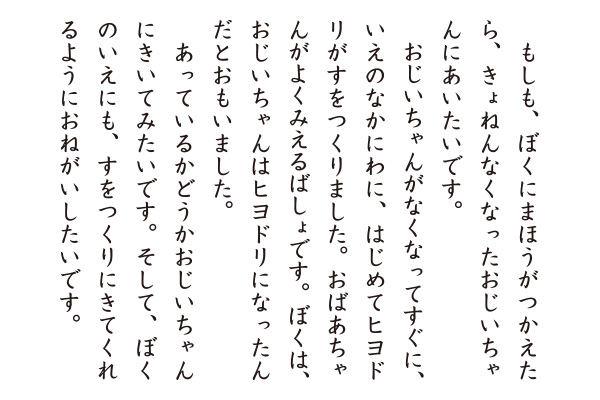 もしも、ぼくにまほうがつかえた
ら、きょねんなくなったおじいちゃ
んにあいたいです。
　おじいちゃんがなくなってすぐに、
いえのなかにわに、はじめてヒヨド
リがすをつくりました。おばあちゃ
んがよくみえるばしょです。ぼくは、
おじいちゃんはヒヨドリになったん
だとおもいました。
　あっているかどうかおじいちゃん
にきいてみたいです。そして、ぼく
のいえにも、すをつくりにきてくれ
るようにおねがいしたいです。